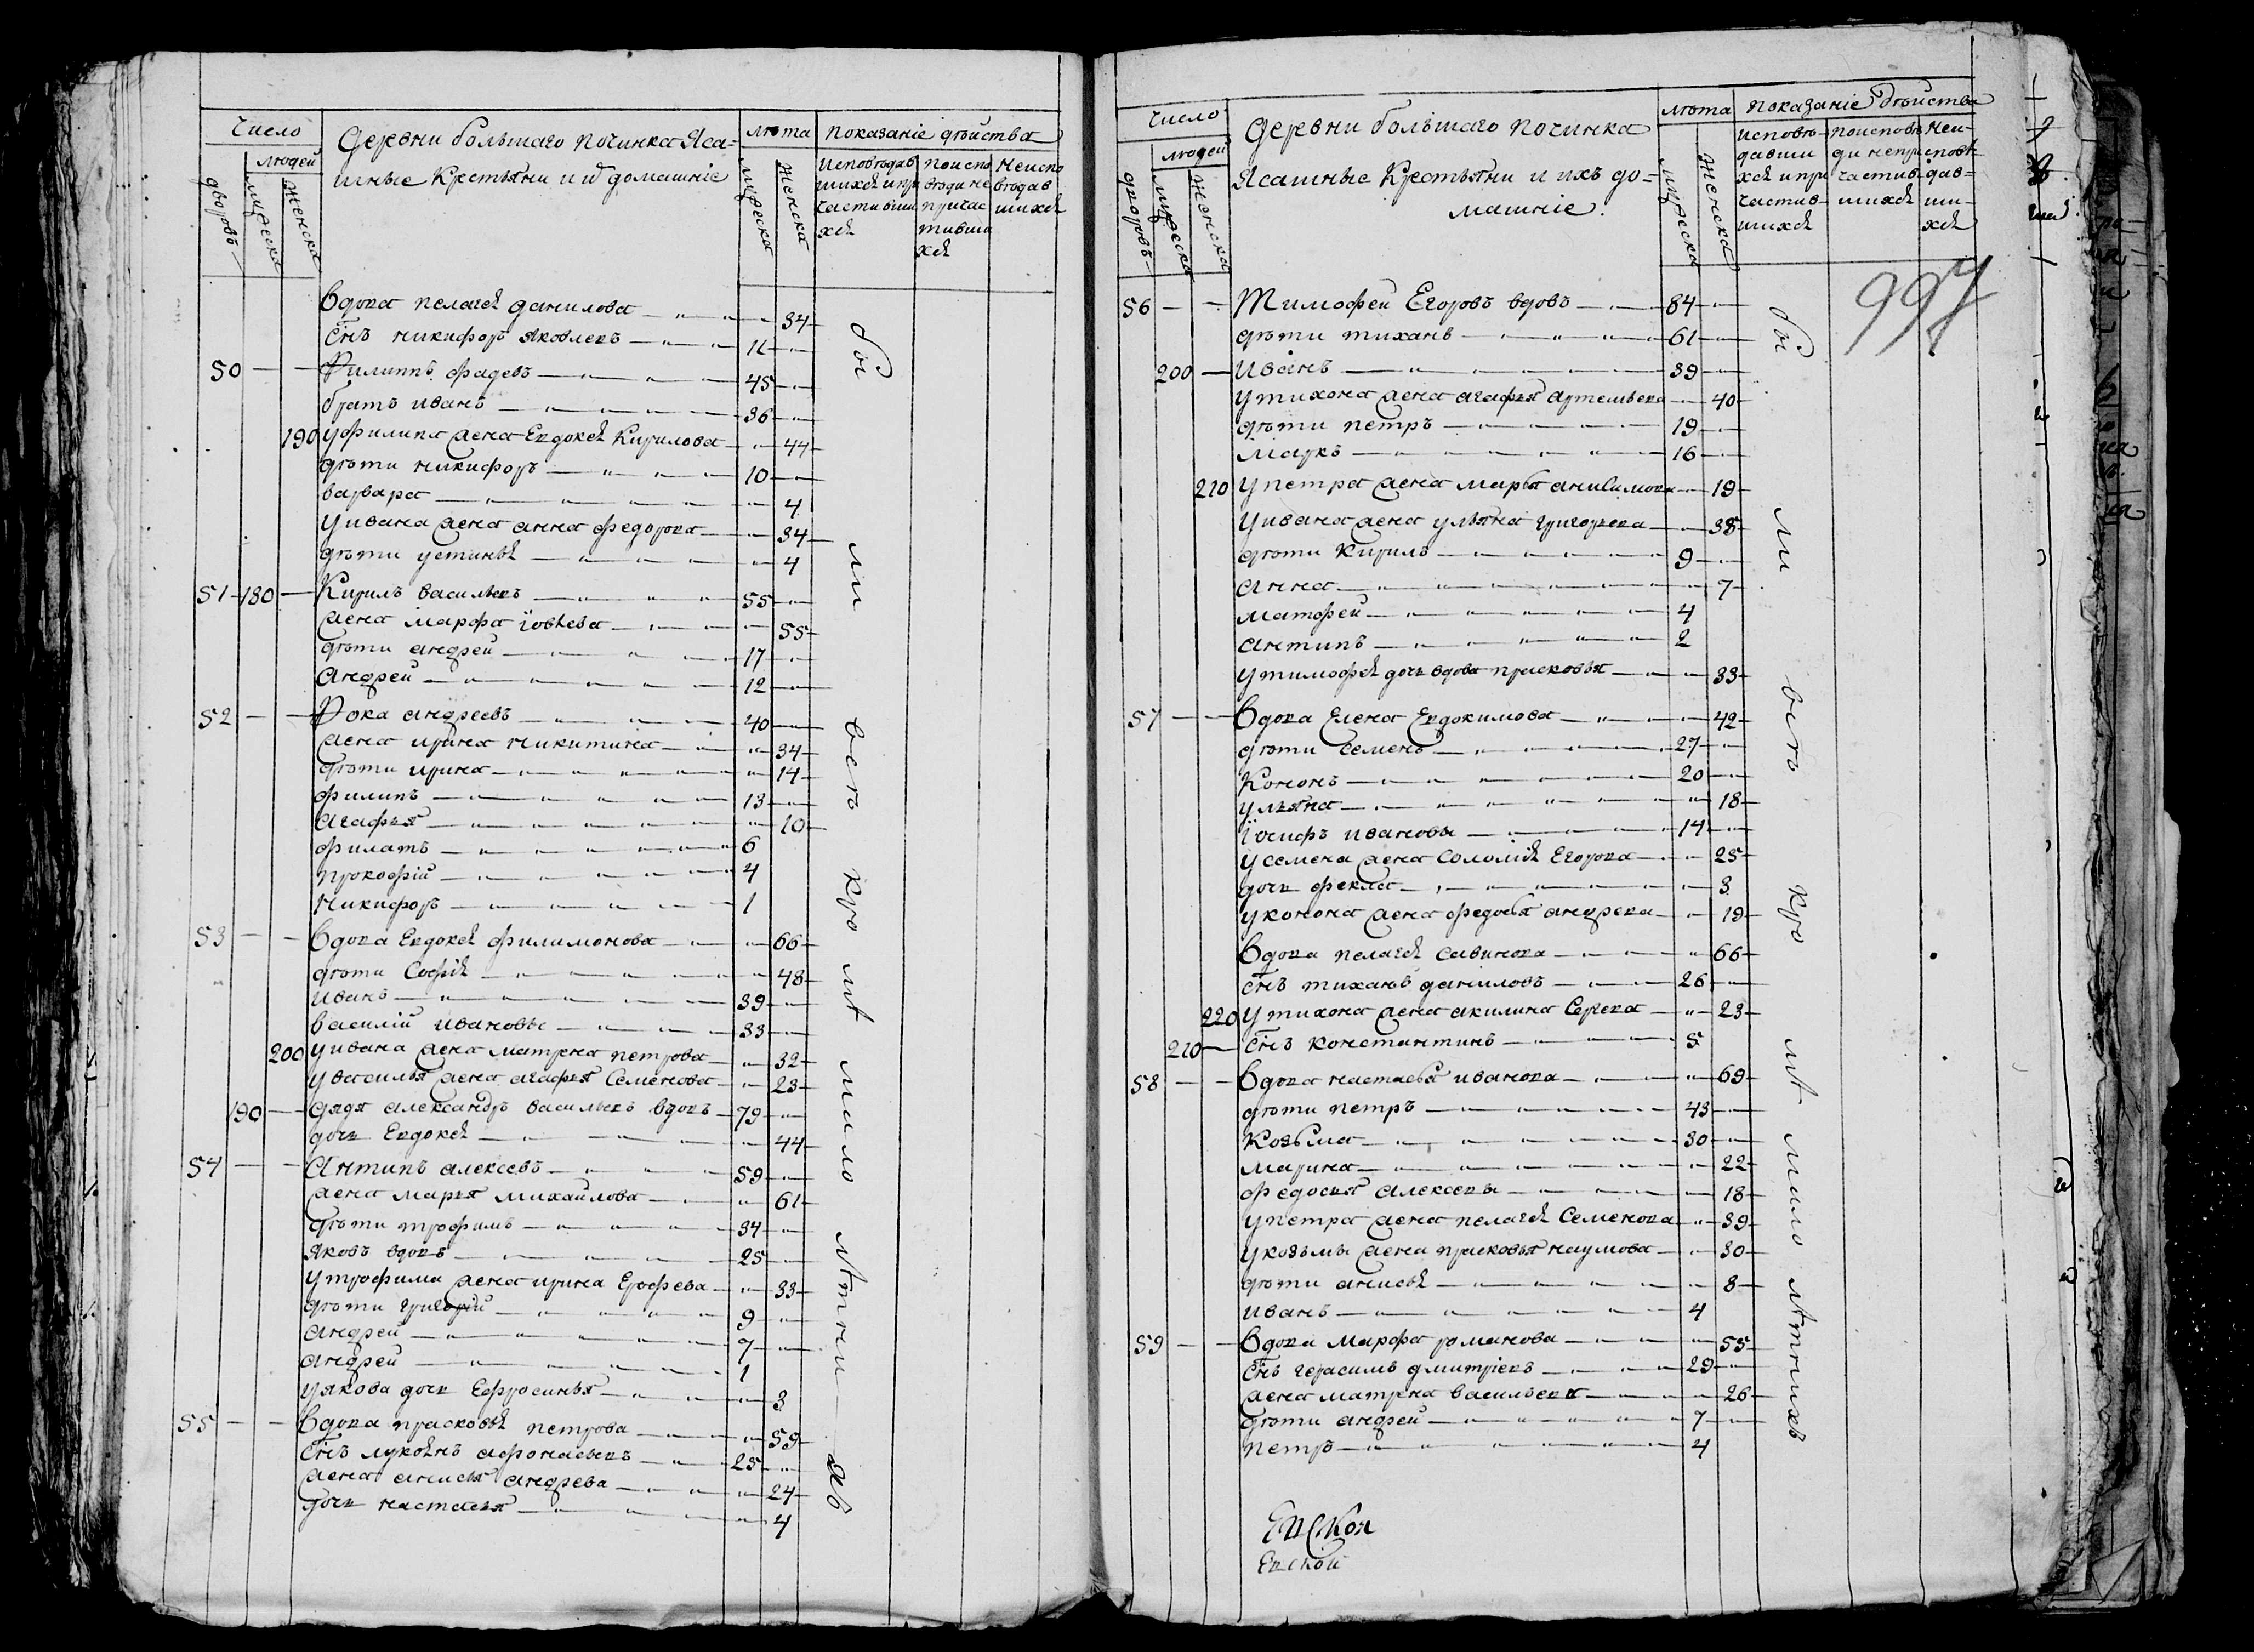 Число
людей
дворовъ
мужеска
женска
Деревни большаго починка Яса=
шные Крестьяни и их домашніе
лѣта
мужеска
женска
показаніе дѣйства
исповѣдав
шихся и при
частивши
хся
по испо
вѣди не
причас
тивши
хся
неиспо
вѣдав
шихся
вдова пелагея данилова 34
снъ никифоръ яковлевъ 11
50 Филиппъ фадевъ 45
братъ иванъ 36
190 у филипа жена Евдокея Кирилова 44
дѣти никифоръ 10
варвара 4
у ивана жена анна федорова 34
дѣти устинья 4
51 180 Кирилъ васильевъ 55
жена марфа їовлева 55
дѣти андрей 17
Андрей 12
52 Фока андреевъ 40
жена ирина никитина 34
дѣти ирина 14
филипъ 13
агафья 10
филатъ 6
прокофій 4
Никифоръ 1
53 вдова Евдокея филимонова 66
дѣти Софія 48
иванъ 39
василіи ивановы 33
200 у ивана жена матрена петрова 32
у василья жена агафья Семенова 23
190 дядя александръ васильевъ вдовъ 79
дочь Евдокея 44
54 Антипъ алексевъ 59
жена марья михайлова 61
дѣти трофимъ 34
яковъ вдовъ 25
у трофима жена ирина Ерофева 33
дѣти григорій 9
андрей 7
андрей 1
у якова дочь Ефросинья 3
55 вдова прасковья петрова 59
снъ лукоянъ афонасьевъ 25
жена анисья андрева 24
дочь настасья 4
бы
ли
всѣ
кро
мѣ
мало
лѣтни
хъ
Число
людей
дворовъ
мужеска
женска
Деревни большаго починка
Ясашные Крестьяни и ихъ до=
машніе.
лѣта
мужеска
женска
показаніе дѣйства
исповѣ=
давши
хся и при
частив=
шихся
по исповѣ
ди непри
частив=
шихся
Неи=
сповѣ
дав=
ши=
хся
997
56 Тимофей Егоровъ вдовъ 84
дѣти тиханъ 61
200 иванъ 39
у тихона жена агафья артемьева 40
дѣти петръ 19
маркъ 16
210 у петра жена марья анисимова 19
у ивана жена ульяна григорьева 38
дѣти Кирилъ 9
анна 7
матфей 4
антипъ 2
у тимофея дочь вдова прасковья 33
57 вдова Елена Евдокимова 42
дѣти семенъ 27
Кононъ 20
ульяна 18
їосифъ ивановы 14
у семена жена соломія Егорова 25
дочь фекла 3
у конона жена федосья андрева 19
вдова пелагея савинова 66
снъ тиханъ даниловъ 26
220 у тихона жена акилина Сергева 23
210 снъ константинъ 5
58 вдова настасья иванова 69
дѣти петръ 43
Козьма 30
марина 22
федосья алексевы 18
у петра жена пелагея Семенова 39
у козьмы жена прасковья наумова 30
дѣти анисья 8
иванъ 4
59 вдова марфа романова 55
снъ герасимъ дмитріевъ 29
жена матрена васильева 26
дѣти андрей 7
петръ 4
бы
ли
всѣ
кро
мѣ
мало
лѣтнихъ